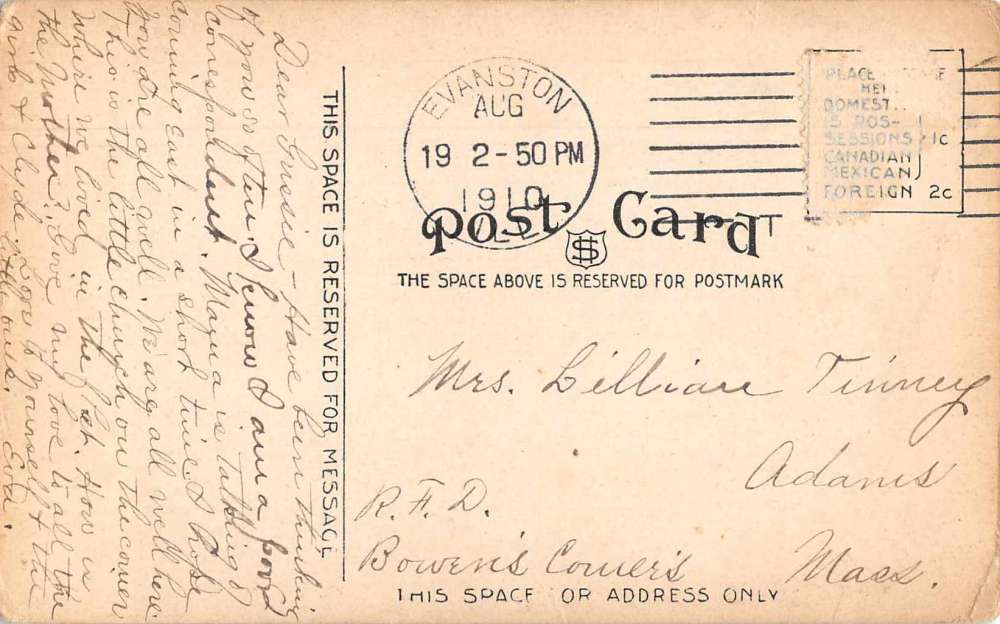 Dear Gussie - Have been thinking
of you so often. I know I am a poor
correspondent. Mayua is talking of
coming East in a short time. I hope
you are all well. We are all well here.
This is the little church on the corner
where we lived in the flat. How is
the Mother? Give my love to all the
girls & Clyde. Love to yourself & the
Eva.
THIS SPACE IS RESERVED FOR MESSAGE
EVANSTON
AUG
19 2-50 PM
1910
ILL
PLACE
HE
DOMEST
IS POS-
SESSIONS 1c
CANADIAN
MEXICAN
FOREIGN 2c
Post Card
THE SPACE ABOVE IS RESERVED FOR POSTMARK
Mrs. Lillian Tinney
Adams
R.F.D.
Bowen's Corners Mass.
THIS SPACE OR ADDRESS ONLY